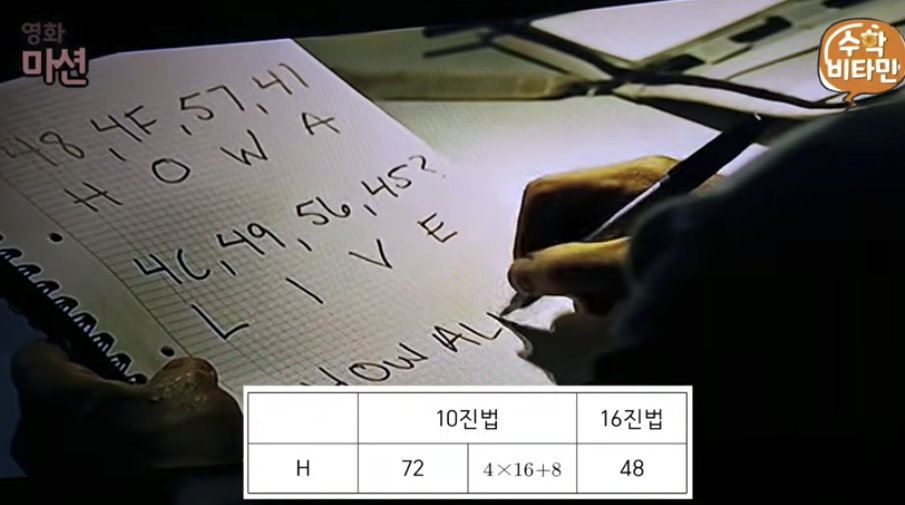 영화
마션
수학
비타민
48, 4F, 57, 41
H O W A
4C, 49, 56, 45?
L I V E
HOW AL
10진법 16진법
H 72 4×16+8 48